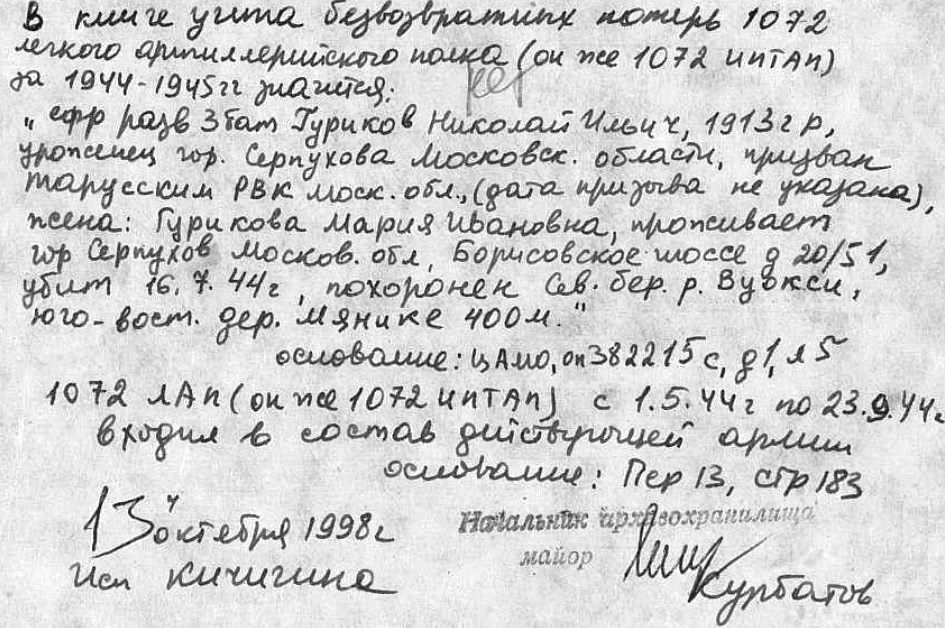 В книге учета безвозвратных потерь 1072
легкого артиллерийского полка (он же 1072 ИПТАП)
за 1944-1945гг значится:
„ефр разв 3 бат Гуриков Николай Ильич, 1913 г р,
уроженец гор. Серпухова Московск. области, призван
Тарусским РВК Моск. обл., (дата призыва не указана),
жена: Гурикова Мария Ивановна, проживает
гор Серпухов Москов. обл, Борисовское шоссе д 20/51,
убит 16.7.44г, похоронен Сев. бер. р. Вуокси,
юго-вост. дер. Мянике 400м."
основание: ЦАМО, оп 382215 с, д 1, л 5
1072 ЛАП (он же 1072 ИПТАП) с 1.5.44г по 23.9.44г
входил в состав действующей армии
основание: Пер 13, стр 183
13 октября 1998г
Исп Кичигина
Начальник архивохранилища
майор
Курбатов